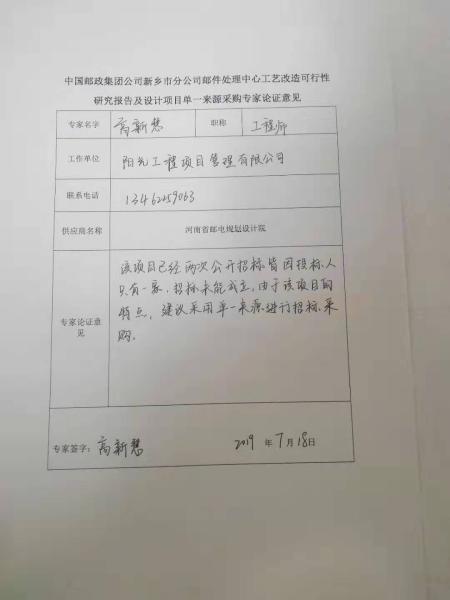 中国邮政集团公司新乡市分公司邮件处理中心工艺改造可行性
研究报告及设计项目单一来源采购专家论证意见
专家名字 高新慧 职称 工程师
工作单位 阳光工程项目管理有限公司
联系电话 13462259063
供应商名称 河南省邮电规划设计院
专家论证意见
该项目已经两次公开招标皆因投标人
只有一家,招标未能成立,由于该项目的
特点,建议采用单一来源进行招标采
购.
专家签字: 高新慧 2019 年 7 月 18 日